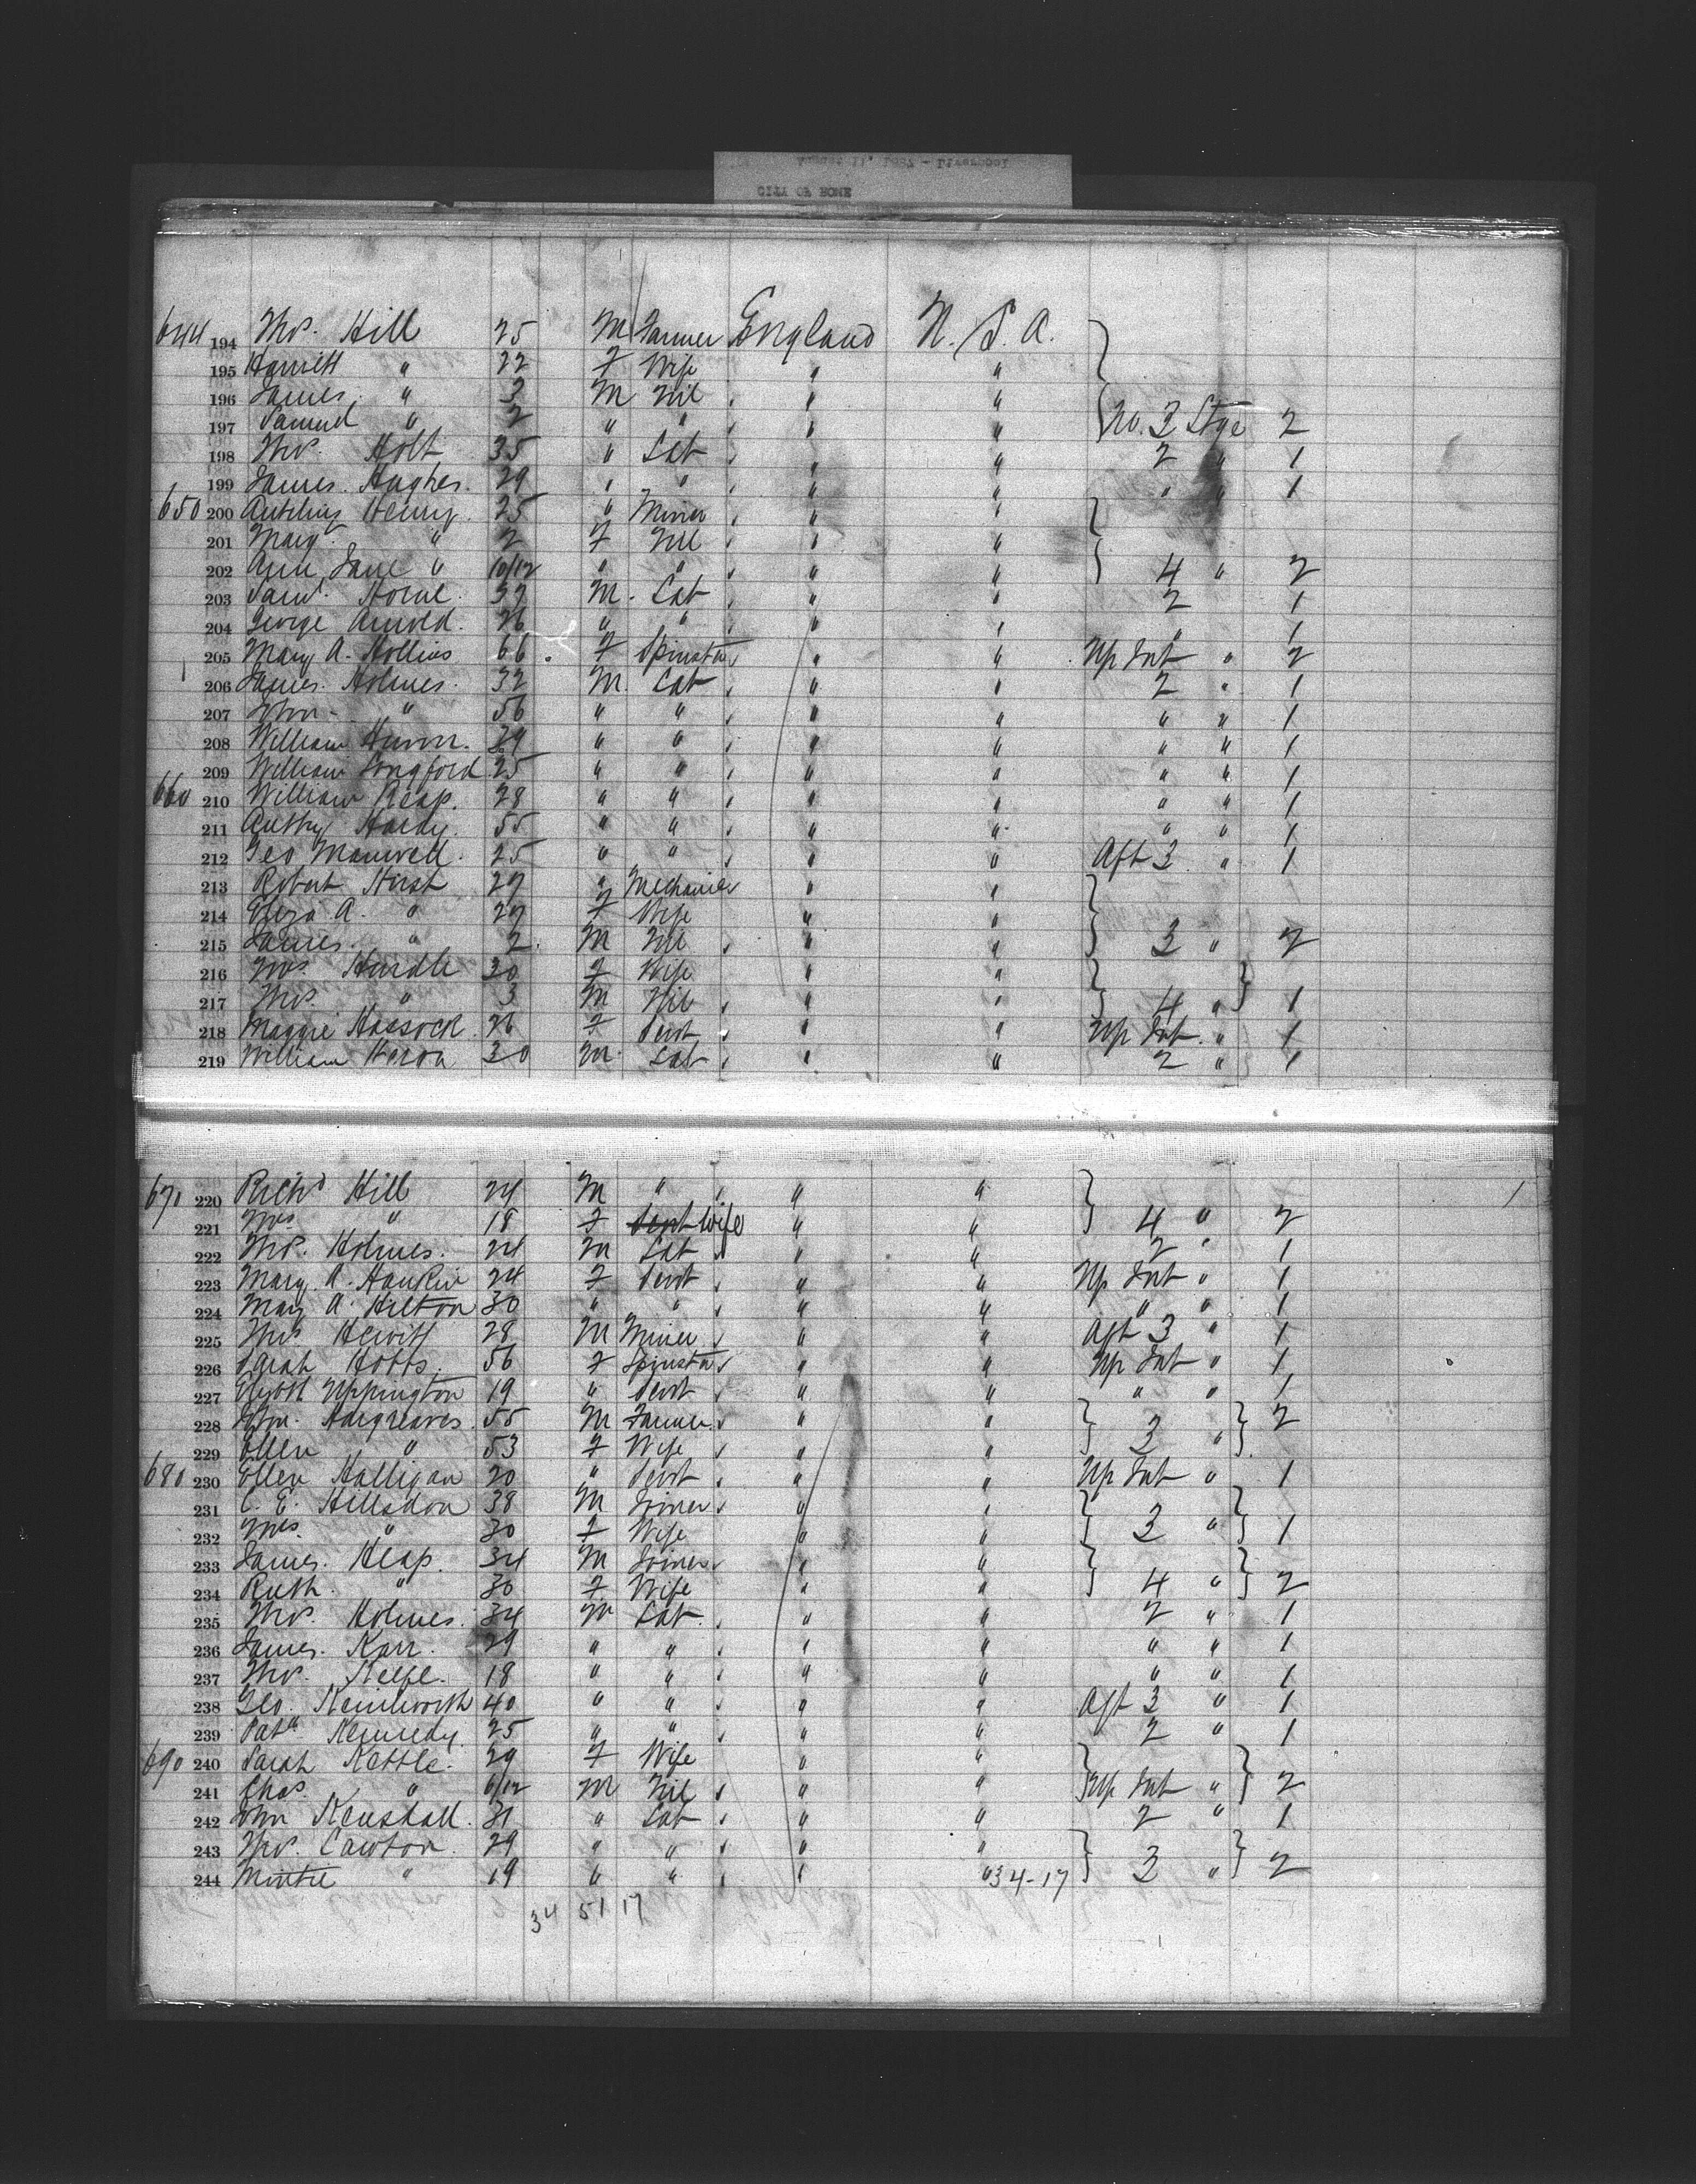 August 11, 1887 - Liverpool
CITY OF ROME
644 194 Thos. Hill 25 M Farmer England U. S. A.
195 Harriett " 22 F Wife " "
196 James " 3 M Nil " "
197 Samuel " 2 " " " " No. 3 Stge 2
198 Thos. Holt 35 " Lab " " 2 " 1
199 James. Hughes. 29 " " " " " " 1
650 200 Henry. 25 " Miner " "
201 Mary " 2 F Nil " "
202 Ann Jane " 10/12 " " " " 4 " 2
203 Saml. Horne. 37 M. Lab " " 2 1
204 George Arnold. 26 " " " " " 1
205 Mary A. Hollins 66. F Spinster " " Up Int " 2
206 James. Holmes. 32 M. Lab " " 2 " 1
207 John - " 56 " " " " " " 1
208 William 29 " " " " " " 1
209 William Longford. 25 " " " " " " 1
660 210 William Heap. 28 " " " " " " 1
211 Anthy Hardy. 55 " " " " " " 1
212 Geo Maxwell. 25 " " " " Aft 3 " 1
213 Robert Hirst 27 " Mechanic " "
214 Eliza A. " 27 F Wife " "
215 James. " 2. M Nil " " 3 " 2
216 Mrs. Hurdle 30 F Wife " "
217 Thos. " 3 M Nil " " 4 " 1
218 Maggie Hassock. 26 F Servt " " Up Int. " 1
219 William Heron 30 M. Lab " " 2 " 1
670 220 Richd Hill 24 M " " "
221 Mrs " 18 F Servt Wife " " 4 " 2
222 Thos. Holmes. 24 M Lab " " 2 " 1
223 Mary A. Hankin 24 F Servt " " Up Int " 1
224 Mary A. Hilton 30 " " " " " " 1
225 Thos Hewitt 28 M Miner " " Aft 3 " 1
226 Sarah Hobbs. 56 F Spinster " " Up Int " 1
227 Uppington 19 " Servt " " " " 1
228 John. Hargreaves. 55 M Farmer " " 2
229 Ellen " 53 F Wife " " 3 "
680 230 Ellen Halligan 20 " Servt " " Up Int " 1
231 C. E. Hillsdon 38 M Joiner " "
232 Mrs. " 30 F Wife " " 3 " 1
233 James. Heap. 34 M Joiner " "
234 Ruth. " 30 F Wife " " 4 " 2
235 Thos. Holmes. 34 M Lab. " " 2 " 1
236 James. Karr. 29 " " " " " " 1
237 Thos. Keefe. 18 " " " " " " 1
238 Geo. Kenilworth 40 " " " " Aft 3 " 1
239 Patk Kennedy. 25 " " " " 2 " 1
690 240 Sarah Kettle. 29 F Wife " "
241 Chas. " 6/12 M Nil " " Up Int " 2
242 John Kenshall. 31 " Lab " " 2 " 1
243 Thos. Cawton. 29 " " " "
244 " 19 " " " " 34-17 3 " 2
34 51 17